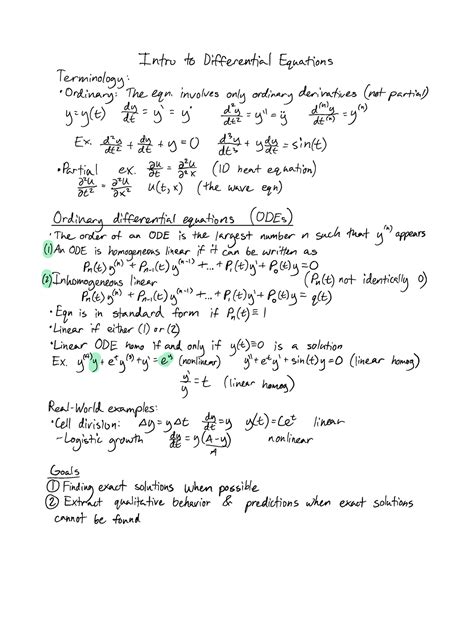 Intro to Differential Equations
Terminology:
• Ordinary: The eqn. involves only ordinary derivatives (not partial)
y = y(t) dy/dt = y' = ẏ d²y/dt² = y'' = ÿ d⁽ⁿ⁾y/dt⁽ⁿ⁾ = y⁽ⁿ⁾
Ex. d²y/dt² + dy/dt + y = 0 d³y/dt³ + y dy/dt = sin(t)
• Partial ex. ∂u/∂t = ∂²u/∂x² (1D heat equation)
∂²u/∂t² = ∂²u/∂x² u(t,x) (the wave eqn)
Ordinary differential equations (ODEs)
• The order of an ODE is the largest number n such that y⁽ⁿ⁾ appears
(1) An ODE is homogeneous linear if it can be written as
Pₙ(t)y⁽ⁿ⁾ + Pₙ₋₁(t)y⁽ⁿ⁻¹⁾ + ... + P₁(t)y' + P₀(t)y = 0
(2) Inhomogeneous linear (Pₙ(t) not identically 0)
Pₙ(t)y⁽ⁿ⁾ + Pₙ₋₁(t)y⁽ⁿ⁻¹⁾ + ... + P₁(t)y' + P₀(t)y = q(t)
• Eqn is in standard form if Pₙ(t) ≡ 1
• Linear if either (1) or (2)
• Linear ODE homo if and only if y(t) ≡ 0 is a solution
Ex. y⁽⁴⁾y + eᵗy⁽³⁾ + y' = eʸ (nonlinear) y'' + eᵗy' + sin(t)y = 0 (linear homog)
y'/y = t (linear homog)
Real-World examples:
• Cell division: Δy = yΔt dy/dt = y y(t) = Ceᵗ linear
- Logistic growth dy/dt = y(A-y)/A nonlinear
Goals
① Finding exact solutions when possible
② Extract qualitative behavior & predictions when exact solutions
cannot be found